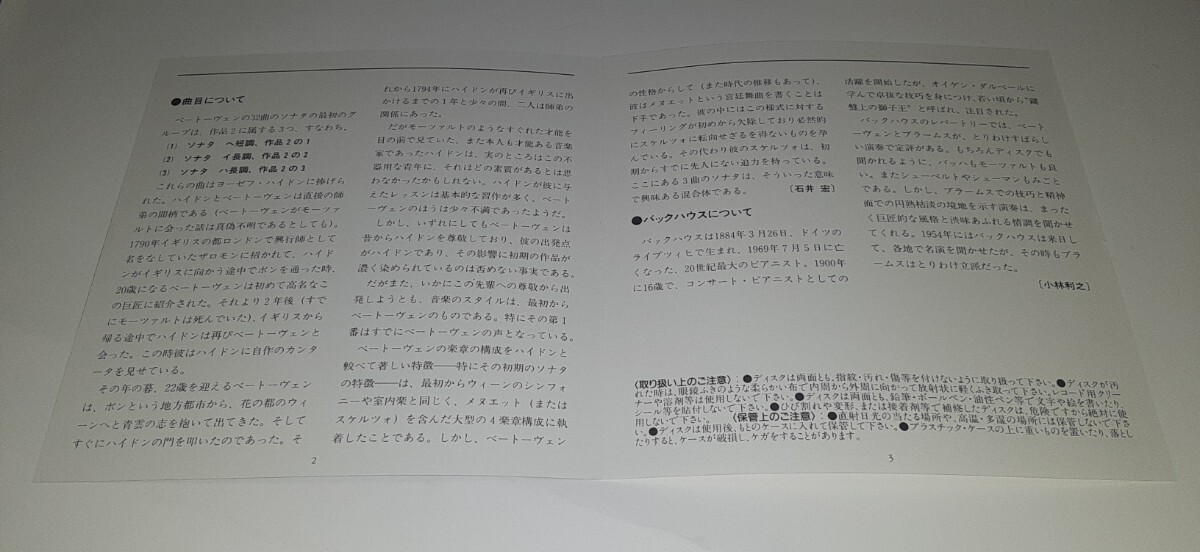 ●曲目について
ベートーヴェンの32曲のソナタの最初のグ
ループは、作品2に属する3つ、すなわち、
(1) ソナタ ヘ短調、作品2の1
(2) ソナタ イ長調、作品2の2
(3) ソナタ ハ長調、作品2の3
これらの曲はヨーゼフ・ハイドンに捧げら
れた。ハイドンとベートーヴェンは直接の師
弟の間柄である(ベートーヴェンがモーツァ
ルトに会った話は真偽不明であるとしても)。
1790年イギリスの都ロンドンで興行師として
名をなしていたザロモンに招かれて、ハイド
ンがイギリスに向かう途中でボンを通った時、
20歳になるベートーヴェンは初めて高名なこ
の巨匠に紹介された。それより2年後(すで
にモーツァルトは死んでいた)、イギリスから
帰る途中でハイドンは再びベートーヴェンと
会った。この時彼はハイドンに自作のカンタ
ータを見せている。
その年の暮、22歳を迎えるベートーヴェン
は、ボンという地方都市から、花の都のウィ
ーンへと青雲の志を抱いて出てきた。そして
すぐにハイドンの門を叩いたのであった。そ
れから1794年にハイドンが再びイギリスに出
かけるまでの1年と少々の間、二人は師弟の
関係にあった。
だがモーツァルトのようなすぐれた才能を
目の前で見ていた、また本人も才能ある音楽
家であったハイドンは、実のところはこの不
器用な青年に、それほどの素質があるとは思
わなかったかもしれない。ハイドンが彼に与
えたレッスンは基本的な習作が多く、ベート
ーヴェンのほうは少々不満であったようだ。
しかし、いずれにしてもベートーヴェンは
昔からハイドンを尊敬しており、彼の出発点
がハイドンであり、その影響に初期の作品が
濃く染められているのは否めない事実である。
だがまた、いかにこの先輩への尊敬から出
発しようとも、音楽のスタイルは、最初から
ベートーヴェンのものである。特にその第1
番はすでにベートーヴェンの声となっている。
ベートーヴェンの楽章の構成をハイドンと
較べて著しい特徴――特にその初期のソナタ
の特徴――は、最初からウィーンのシンフォ
ニーや室内楽と同じく、メヌエット(または
スケルツォ)を含んだ大型の4楽章構成に執
着したことである。しかし、ベートーヴェン
2
の性格からして(また時代の推移もあって)、
彼はメヌエットという宮廷舞曲を書くことは
下手であった。彼の中にはこの様式に対する
フィーリングが初めから欠除しており必然的
にスケルツォに転向せざるを得ないものを孕
んでいる。その代わり彼のスケルツォは、初
期からすでに先人にない迫力を持っている。
ここにある3曲のソナタは、そういった意味
で興味ある混合体である。 〔石井 宏〕
●バックハウスについて
バックハウスは1884年3月26日、ドイツの
ライプツィヒで生まれ、1969年7月5日に亡
くなった、20世紀最大のピアニスト。1900年
に16歳で、コンサート・ピアニストとしての
活躍を開始したが、オイゲン・ダルベールに
学んで卓抜な技巧を身につけ、若い頃から"鍵
盤上の獅子王"と呼ばれ、注目された。
バックハウスのレパートリーでは、ベート
ーヴェンとブラームスが、とりわけすばらし
い演奏で定評がある。もちろんディスクでも
聞かれるように、バッハもモーツァルトも良
い。またシューベルトやシューマンもみごと
である。しかし、ブラームスでの技巧と精神
面での円熟枯淡の境地を示す演奏は、まった
く巨匠的な風格と渋味あふれる情調を聞かせ
てくれる。1954年にはバックハウスは来日し
て、各地で名演を聞かせたが、その時もブラ
ームスはとりわけ立派だった。
〔小林利之〕
〈取り扱い上のご注意〉:●ディスクは両面とも、指紋・汚れ・傷等を付けないように取り扱って下さい。●ディスクが汚
れた時は、眼鏡ふきのような柔らかい布で内周から外周に向かって放射状に軽くふき取って下さい。レコード用クリー
ナーや溶剤等は使用しないで下さい。●ディスクは両面とも、鉛筆・ボールペン・油性ペン等で文字や絵を書いたり
シール等を貼付しないで下さい。●ひび割れや変形、または接着剤等で補修したディスクは、危険ですから絶対に使
用しないで下さい。 〈保管上のご注意〉:●直射日光の当たる場所や、高温・多湿の場所には保管しないで下さ
い。●ディスクは使用後、もとのケースに入れて保管して下さい。●プラスチック・ケースの上に重いものを置いたり、落とし
たりすると、ケースが破損し、ケガをすることがあります。
3